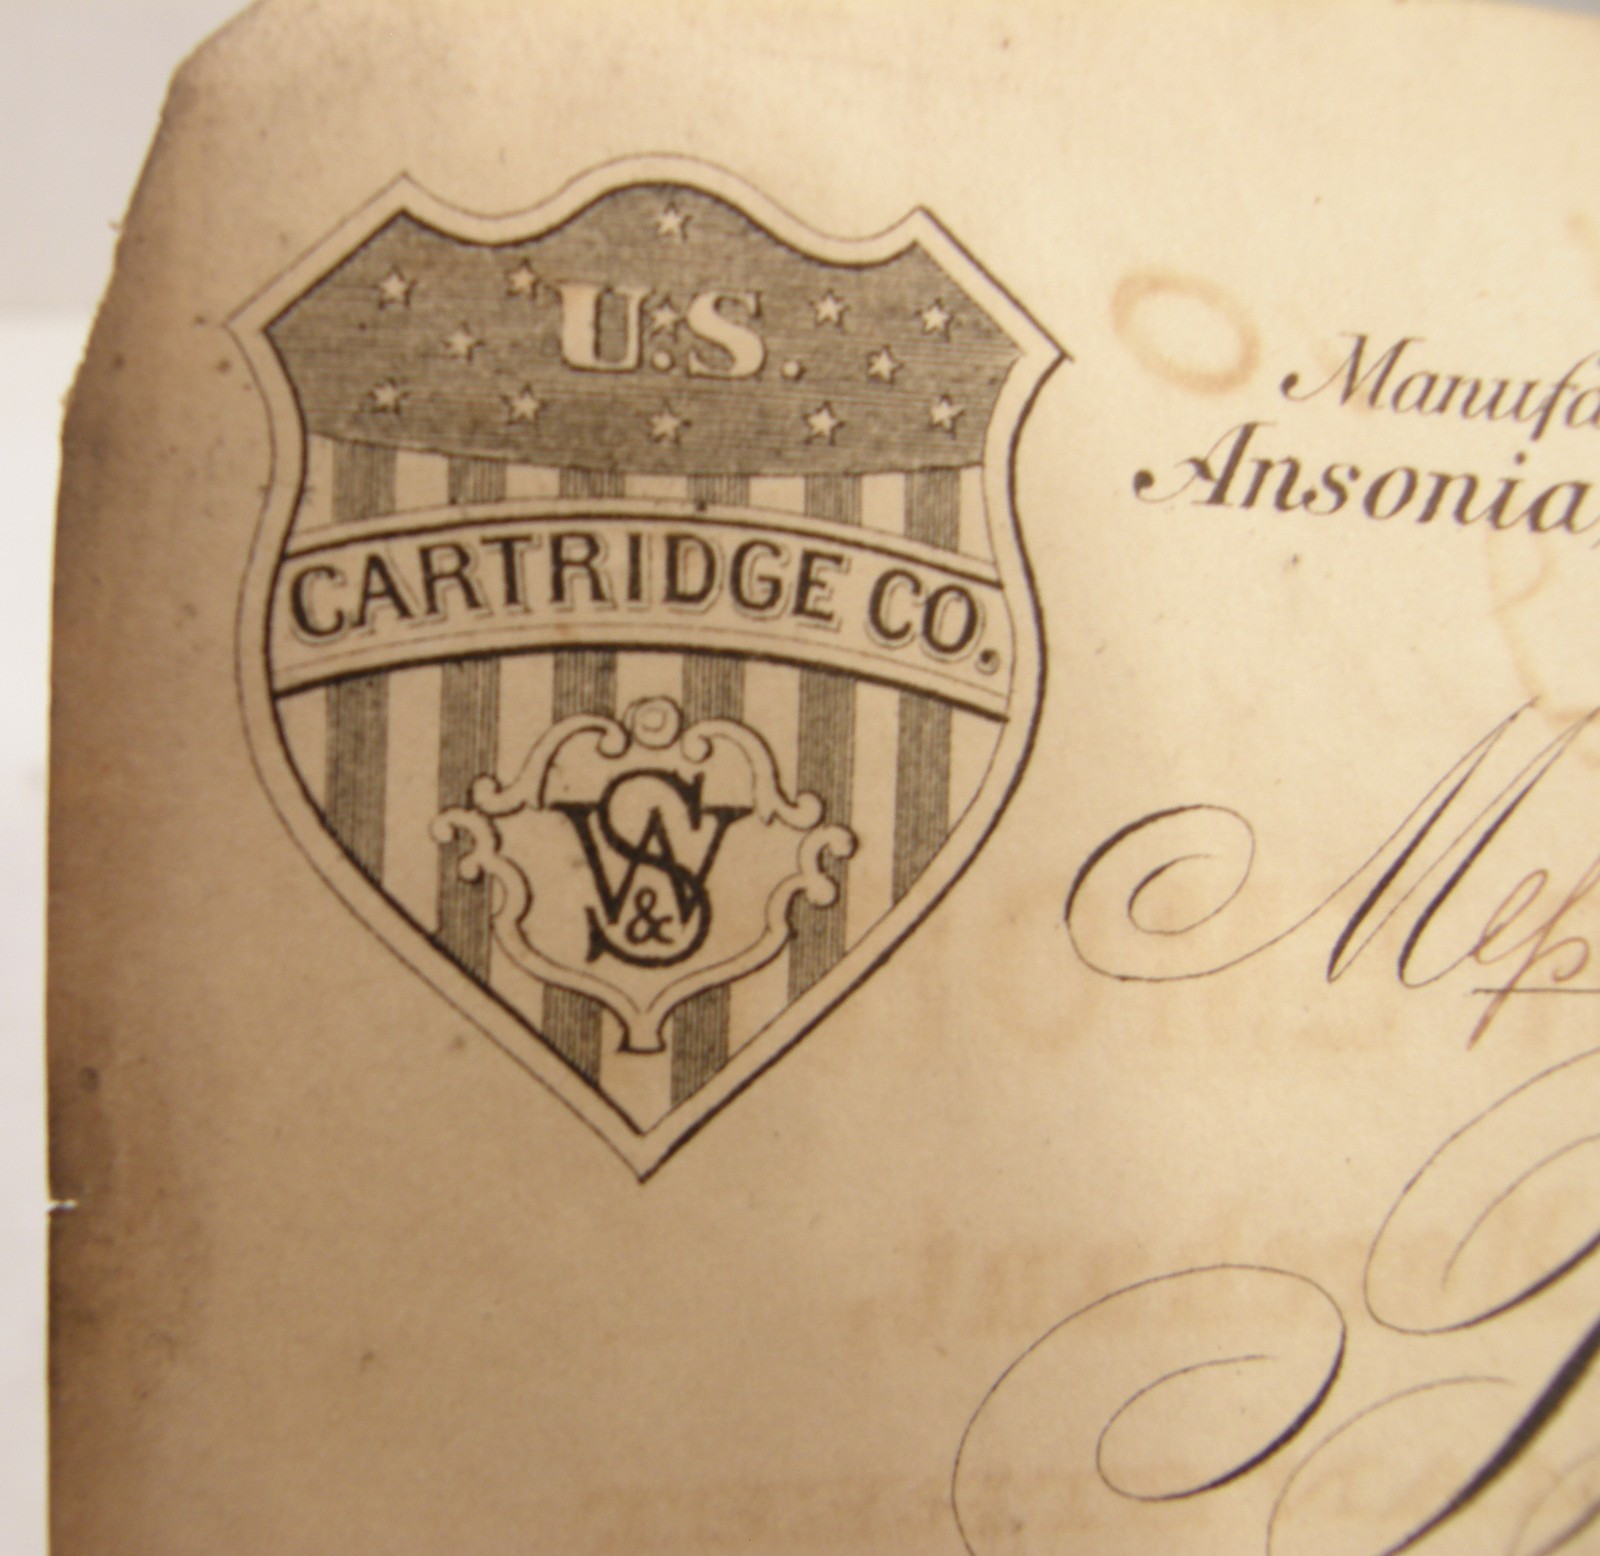 U.S.
CARTRIDGE CO.
W S &
Manufa
Ansonia,
Mess